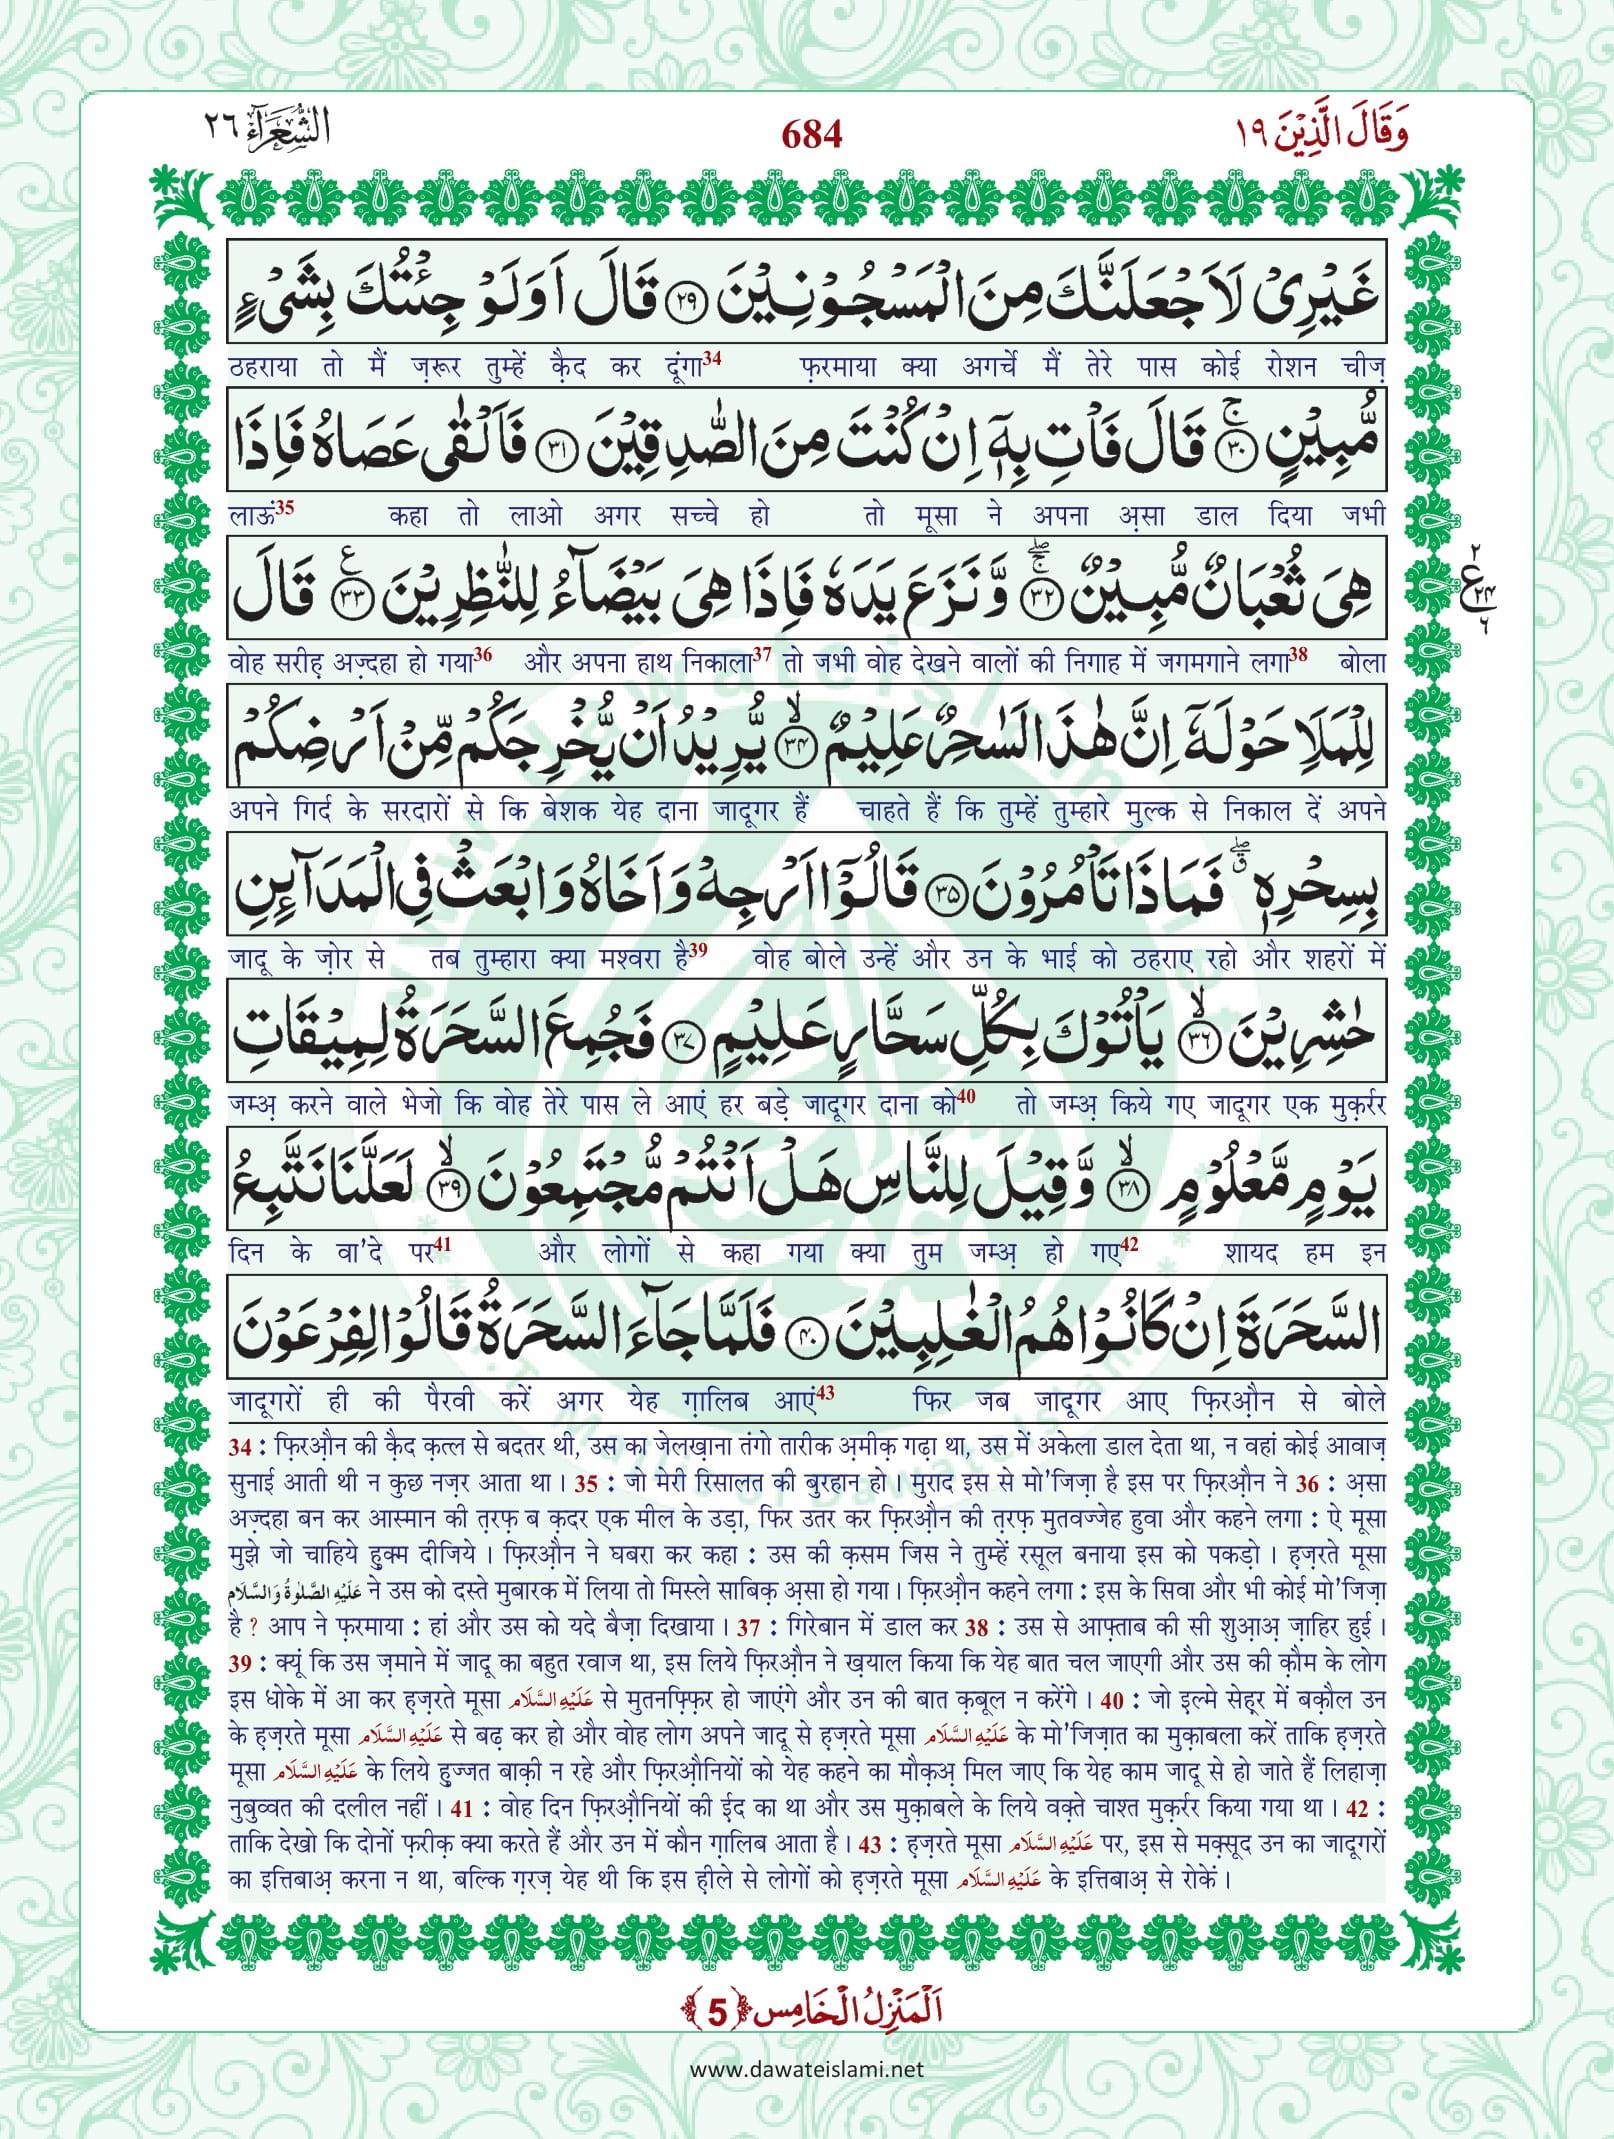 وَقَالَ الَّذِیْنَ ١٩
684
الشُّعَرَآء ٢٦
غَیْرِیْ لَاَجْعَلَنَّكَ مِنَ الْمَسْجُوْنِیْنَ ﴿۲۹﴾ قَالَ اَوَلَوْ جِئْتُكَ بِشَیْءٍ
ठहराया तो मैं ज़रूर तुम्हें कै़द कर दूंगा34 फ़रमाया क्या अगर्चे मैं तेरे पास कोई रोशन चीज़
مُّبِیْنٍ ﴿۳۰﴾ۚ قَالَ فَاْتِ بِهٖۤ اِنْ كُنْتَ مِنَ الصّٰدِقِیْنَ ﴿۳۱﴾ فَاَلْقٰى عَصَاهُ فَاِذَا
लाऊं35 कहा तो लाओ अगर सच्चे हो तो मूसा ने अपना अ़सा डाल दिया जभी
هِیَ ثُعْبَانٌ مُّبِیْنٌ ﴿۳۲﴾ۚۖ وَّ نَزَعَ یَدَهٗ فَاِذَا هِیَ بَیْضَآءُ لِلنّٰظِرِیْنَ ﴿۳۳﴾ع قَالَ
٢
ع ٢٤
٦
वोह सरीह़ अज़्दहा हो गया36 और अपना हाथ निकाला37 तो जभी वोह देखने वालों की निगाह में जगमगाने लगा38 बोला
لِلْمَلَاِ حَوْلَهٗۤ اِنَّ هٰذَا لَسٰحِرٌ عَلِیْمٌ ﴿۳۴﴾ۙ یُّرِیْدُ اَنْ یُّخْرِجَكُمْ مِّنْ اَرْضِكُمْ
अपने गिर्द के सरदारों से कि बेशक येह दाना जादूगर हैं चाहते हैं कि तुम्हें तुम्हारे मुल्क से निकाल दें अपने
بِسِحْرِهٖ ۖۗ فَمَا ذَا تَاْمُرُوْنَ ﴿۳۵﴾ قَالُوْۤا اَرْجِهْ وَ اَخَاهُ وَ ابْعَثْ فِی الْمَدَآىِٕنِ
जादू के ज़ोर से तब तुम्हारा क्या मश्वरा है39 वोह बोले उन्हें और उन के भाई को ठहराए रहो और शहरों में
حٰشِرِیْنَ ﴿۳۶﴾ۙ یَاْتُوْكَ بِكُلِّ سَحَّارٍ عَلِیْمٍ ﴿۳۷﴾ فَجُمِعَ السَّحَرَةُ لِمِیْقَاتِ
जम्अ़ करने वाले भेजो कि वोह तेरे पास ले आएं हर बड़े जादूगर दाना को40 तो जम्अ़ किये गए जादूगर एक मुक़र्रर
یَوْمٍ مَّعْلُوْمٍ ﴿۳۸﴾ۙ وَّ قِیْلَ لِلنَّاسِ هَلْ اَنْتُمْ مُّجْتَمِعُوْنَ ﴿۳۹﴾ۙ لَعَلَّنَا نَتَّبِعُ
दिन के वा'दे पर41 और लोगों से कहा गया क्या तुम जम्अ़ हो गए42 शायद हम इन
السَّحَرَةَ اِنْ كَانُوْا هُمُ الْغٰلِبِیْنَ ﴿۴۰﴾ فَلَمَّا جَآءَ السَّحَرَةُ قَالُوْا لِفِرْعَوْنَ
जादूगरों ही की पैरवी करें अगर येह ग़ालिब आएं43 फिर जब जादूगर आए फ़िरऔ़न से बोले
34 : फ़िरऔ़न की कै़द क़त्ल से बदतर थी, उस का जेलख़ाना तंगो तारीक अ़मीक़ गढ़ा था, उस में अकेला डाल देता था, न वहां कोई आवाज़
सुनाई आती थी न कुछ नज़र आता था। 35 : जो मेरी रिसालत की बुरहान हो। मुराद इस से मो'जिज़ा है इस पर फ़िरऔ़न ने 36 : अ़सा
अज़्दहा बन कर आस्मान की त़रफ़ ब क़दर एक मील के उड़ा, फिर उतर कर फ़िरऔ़न की त़रफ़ मुतवज्जेह हुवा और कहने लगा : ऐ मूसा
मुझे जो चाहिये हुक्म दीजिये। फ़िरऔ़न ने घबरा कर कहा : उस की क़सम जिस ने तुम्हें रसूल बनाया इस को पकड़ो। ह़ज़रते मूसा
عَلَیْہِ الصَّلٰوۃُ وَالسَّلَام ने उस को दस्ते मुबारक में लिया तो मिस्ले साबिक़ अ़सा हो गया। फ़िरऔ़न कहने लगा : इस के सिवा और भी कोई मो'जिज़ा
है ? आप ने फ़रमाया : हां और उस को यदे बैज़ा दिखाया। 37 : गिरेबान में डाल कर 38 : उस से आफ़्ताब की सी शुआ़अ़ ज़ाहिर हुई।
39 : क्यूं कि उस ज़माने में जादू का बहुत रवाज था, इस लिये फ़िरऔ़न ने ख़याल किया कि येह बात चल जाएगी और उस की क़ौम के लोग
इस धोके में आ कर ह़ज़रते मूसा عَلَیْہِ السَّلَام से मुतनफ़्फ़िर हो जाएंगे और उन की बात क़बूल न करेंगे। 40 : जो इल्मे सेह़्र में बक़ौल उन
के ह़ज़रते मूसा عَلَیْہِ السَّلَام से बढ़ कर हो और वोह लोग अपने जादू से ह़ज़रते मूसा عَلَیْہِ السَّلَام के मो'जिज़ात का मुक़ाबला करें ताकि ह़ज़रते
मूसा عَلَیْہِ السَّلَام के लिये हुज्जत बाक़ी न रहे और फ़िरऔ़नियों को येह कहने का मौक़अ़ मिल जाए कि येह काम जादू से हो जाते हैं लिहाज़ा
नुबुव्वत की दलील नहीं। 41 : वोह दिन फ़िरऔ़नियों की ईद का था और उस मुक़ाबले के लिये वक़्ते चाश्त मुक़र्रर किया गया था। 42 :
ताकि देखो कि दोनों फ़रीक़ क्या करते हैं और उन में कौन ग़ालिब आता है। 43 : ह़ज़रते मूसा عَلَیْہِ السَّلَام पर, इस से मक़्सूद उन का जादूगरों
का इत्तिबाअ़ करना न था, बल्कि ग़रज़ येह थी कि इस ह़ीले से लोगों को ह़ज़रते मूसा عَلَیْہِ السَّلَام के इत्तिबाअ़ से रोकें।
اَلْمَنْزِلُ الْخَامِس ﴿5﴾
www.dawateislami.net